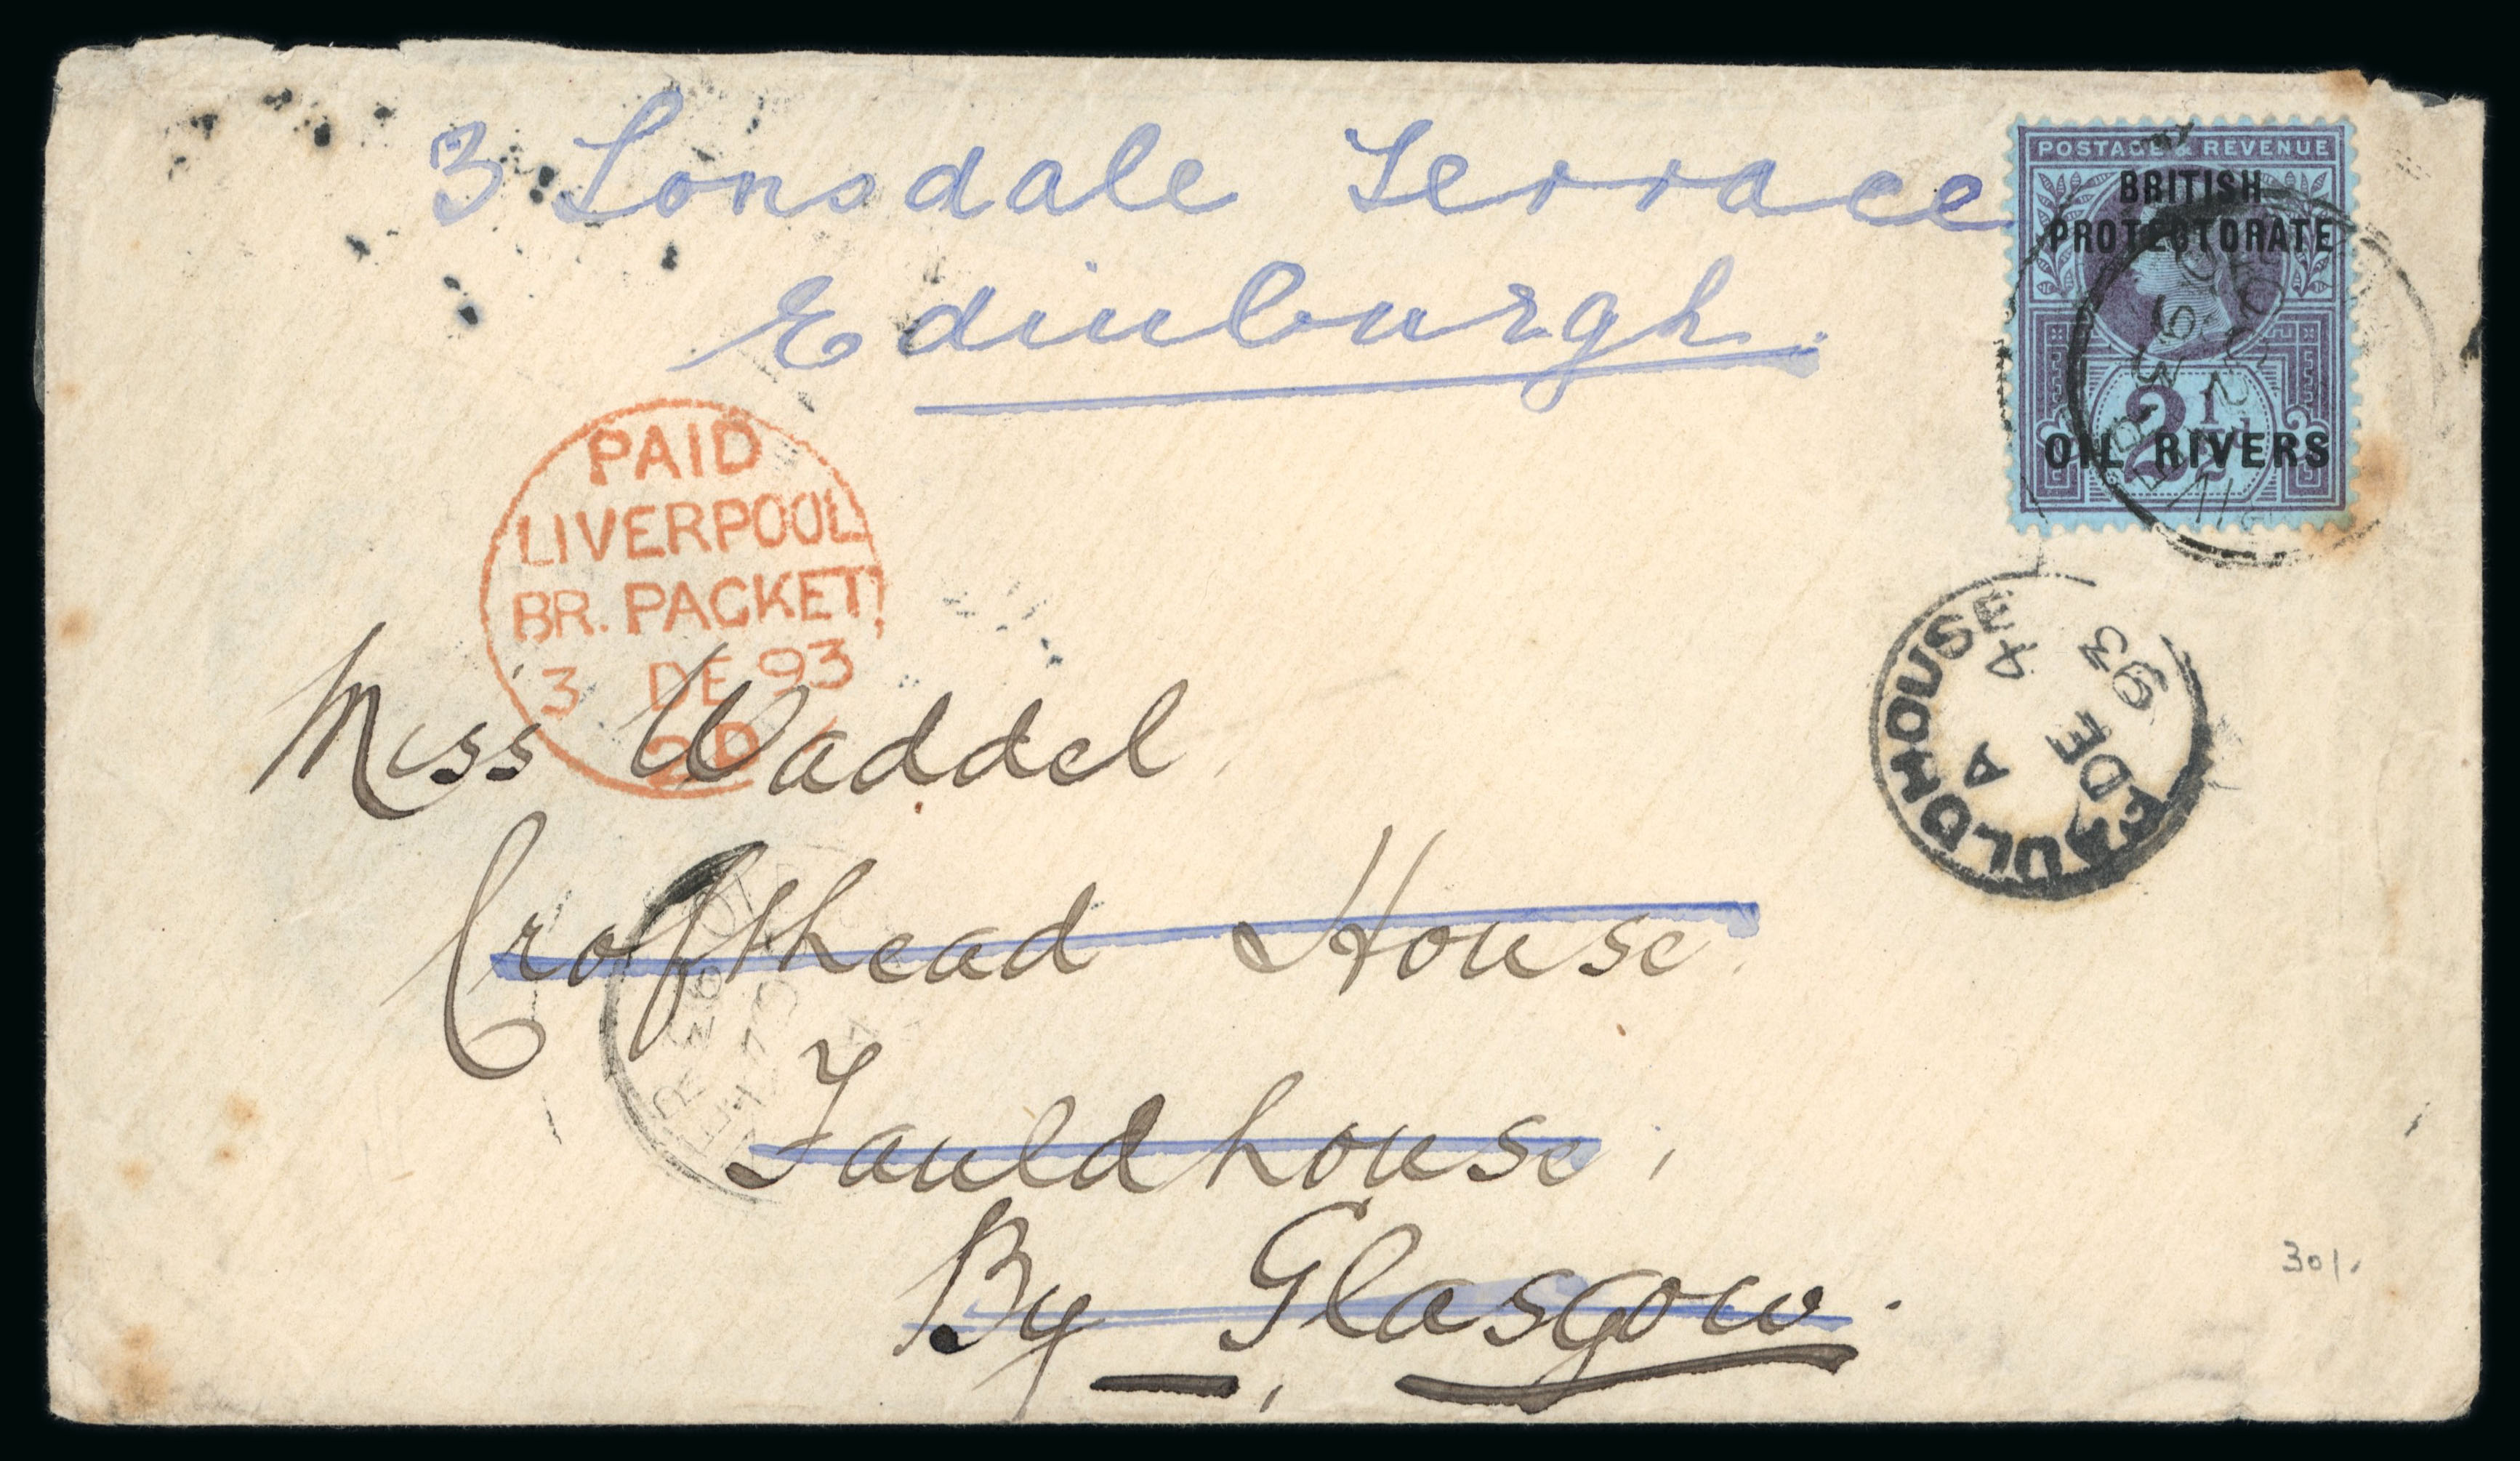 3 Lonsdale Terrace
Edinburgh.
POSTAGE & REVENUE
BRITISH
PROTECTORATE
2½d
OIL RIVERS
PAID
LIVERPOOL
BR. PACKET
3 DE 93
2D
FAULDHOUSE
A
4
DE
93
Miss Waddel
Crofthead House
Fauldhouse,
By Glasgow.
301.